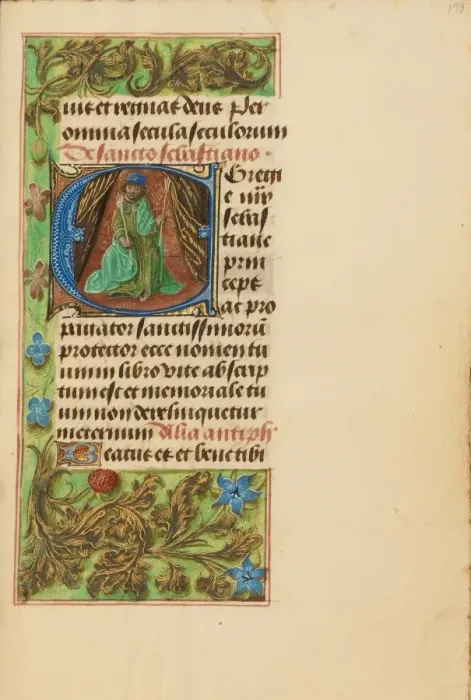 uit et regnat deus Per
omnia secula seculorum
De sancto sebastiano ·
EGregi
e mr̃
sebas
tiane
prin
ceps
ac pro
pauator sanctissimorū
protector ecce nomen tu
um in libro vite abscrip
tum est et memoriale tu
um non derelinquetur
in eternum Alia antiph
Beatus es et bene tibi